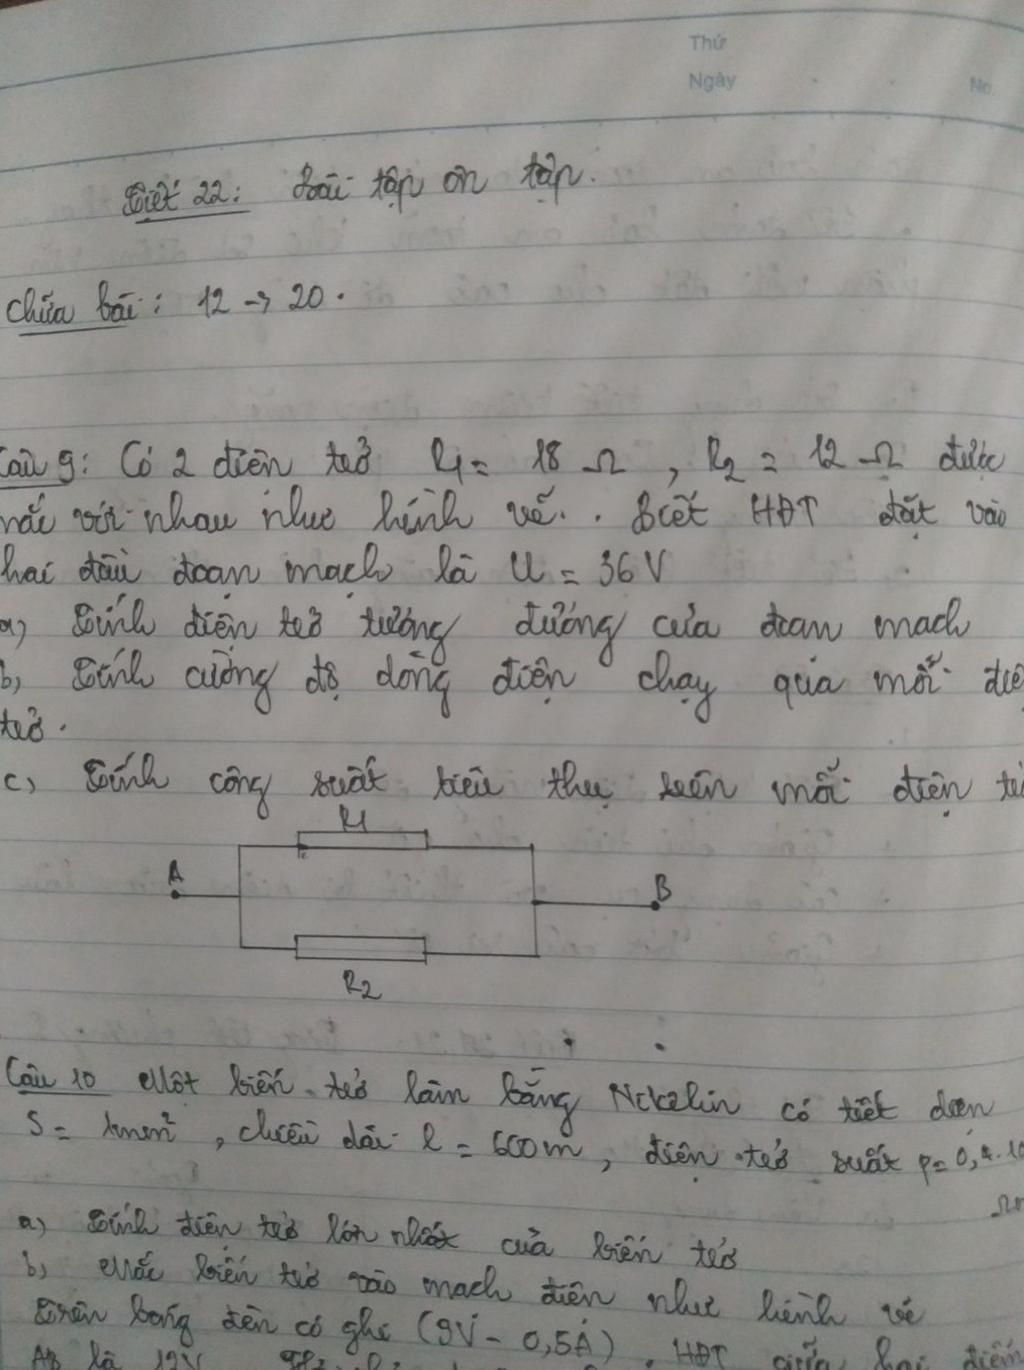 Thứ
Ngày
No.
Tiết 22: Bài tập ôn tập.
Chữa bài: 12 → 20.
Câu 9: Có 2 điện trở R1 = 18 Ω, R2 = 12 Ω được
mắc với nhau như hình vẽ. Biết HĐT đặt vào
hai đầu đoạn mạch là U = 36V
a, Tính điện trở tương đương của đoạn mạch
b, Tính cường độ dòng điện chạy qua mỗi điệ
trở.
c, Tính công suất tiêu thụ trên mỗi điện tr
R1
A
B
R2
Câu 10 Một biến trở làm bằng Nckelin có tiết diện
S = 1mm², chiều dài l = 600m, điện trở suất ρ = 0,4.10
Ωm
a, Tính điện trở lớn nhất của biến trở
b, Mắc biến trở vào mạch điện như hình vẽ
Trên bóng đèn có ghi (9V - 0,5A). HĐT giữa hai điểm
AB là 12V